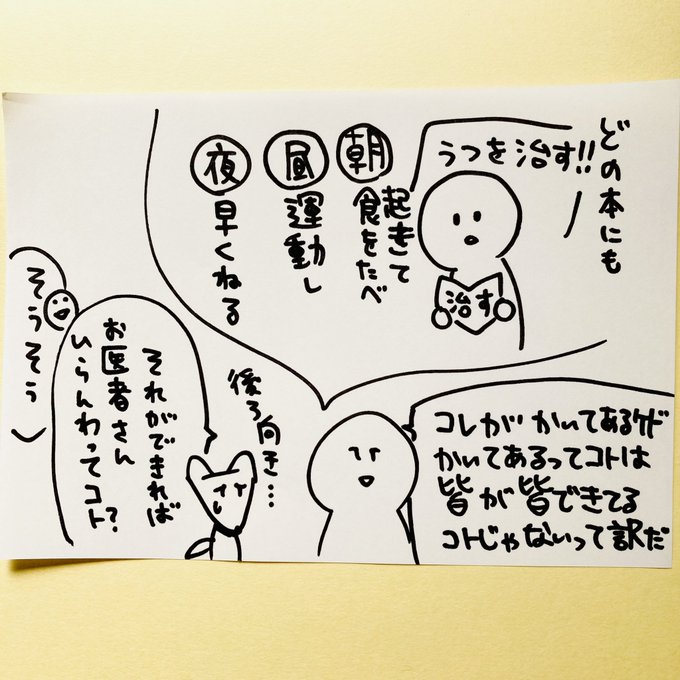 どの本にも
うつを治す!!
治す
朝
起きて
食をたべ
昼
運動し
夜
早くねる
コレがかいてあるケド
かいてあるってコトは
皆が皆できてる
コトじゃないって訳だ
後ろ向き…
それができれば
お医者さん
いらんわってコト?
そうそう